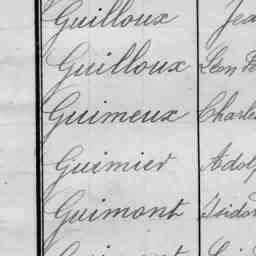 Guilloux Jea
Guilloux Léon
Guimeux Charle
Guimier Adolp
Guimont Isidor